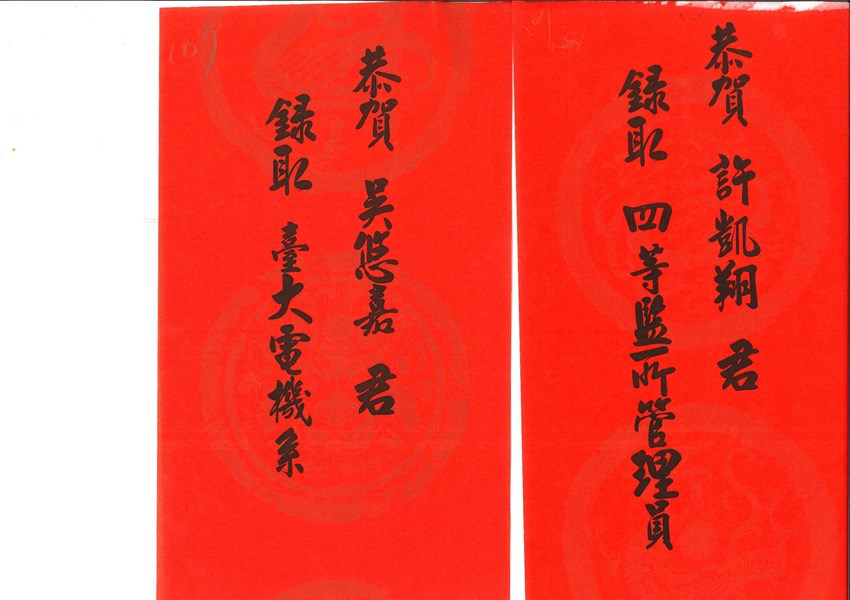 恭賀 許凱翔 君
錄取 四等監所管理員
恭賀 吳悠嘉 君
錄取 臺大電機系
107